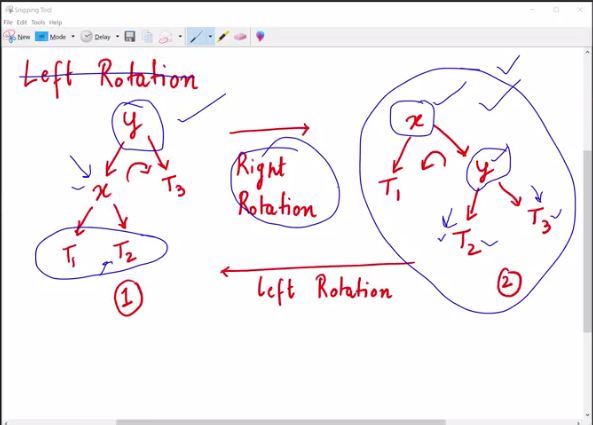 Snipping Tool
File Edit Tools Help
New Mode Delay
Left Rotation
y
x T3
T1 T2
1
Right
Rotation
Left Rotation
x
T1 y
T2 T3
2